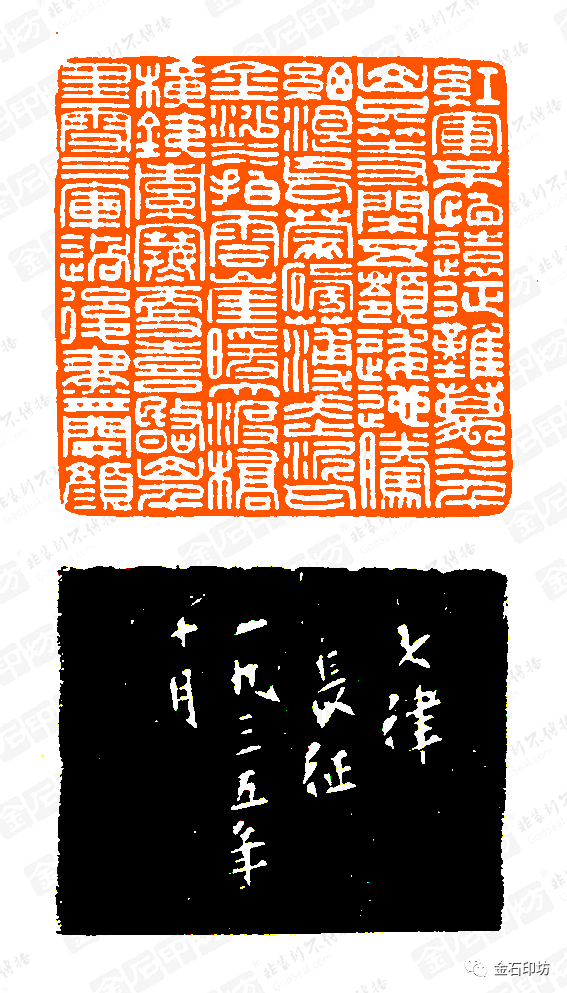 紅軍不怕遠征難萬水
千山只等閒五嶺逶迤騰
細浪烏蒙磅礴走泥丸
金沙水拍雲崖暖大渡橋
橫鐵索寒更喜岷山千
里雪三軍過後盡開顏
七律
長征
一九三五年
十月
金石印坊